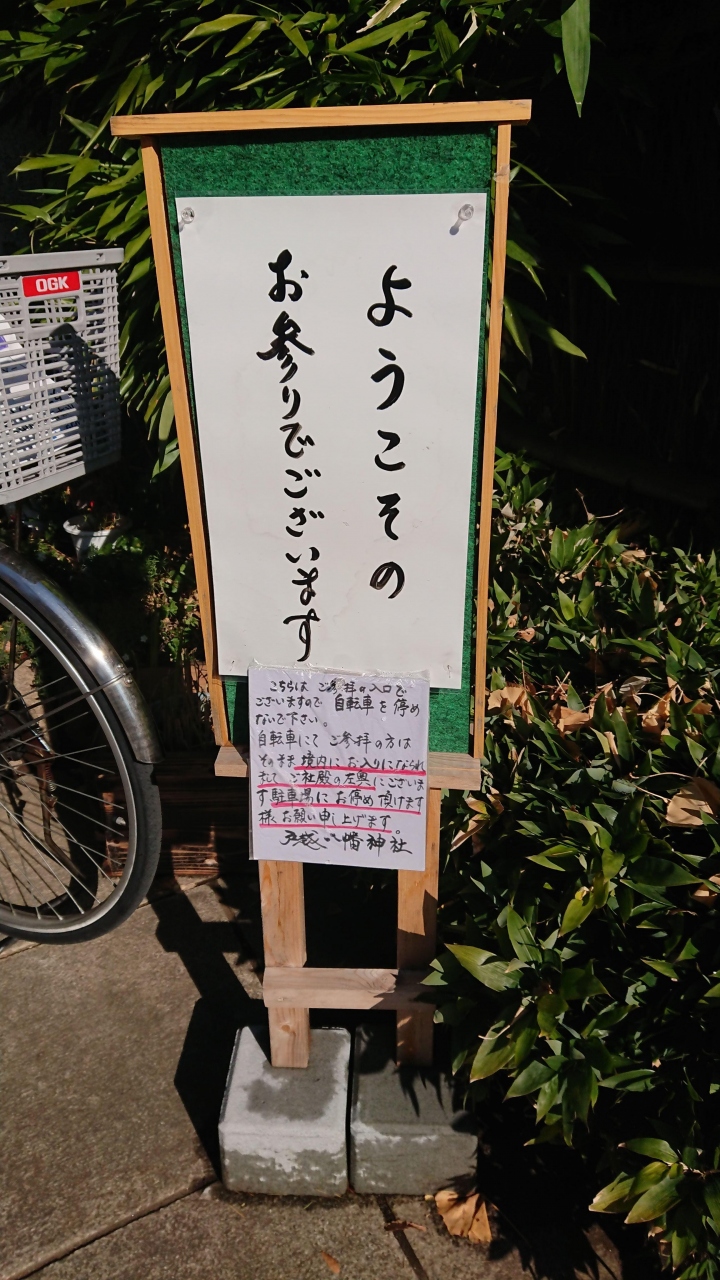 OGK
ようこその
お参りでございます
こちらは ご参拝の入口で
ございますので 自転車を停め
ないで下さい。
自転車にて ご参拝の方は
そのまま境内にお入りになられ
まして ご社殿の左奥にございま
す駐車場にお停め頂けます
様お願い申し上げます。
八幡神社